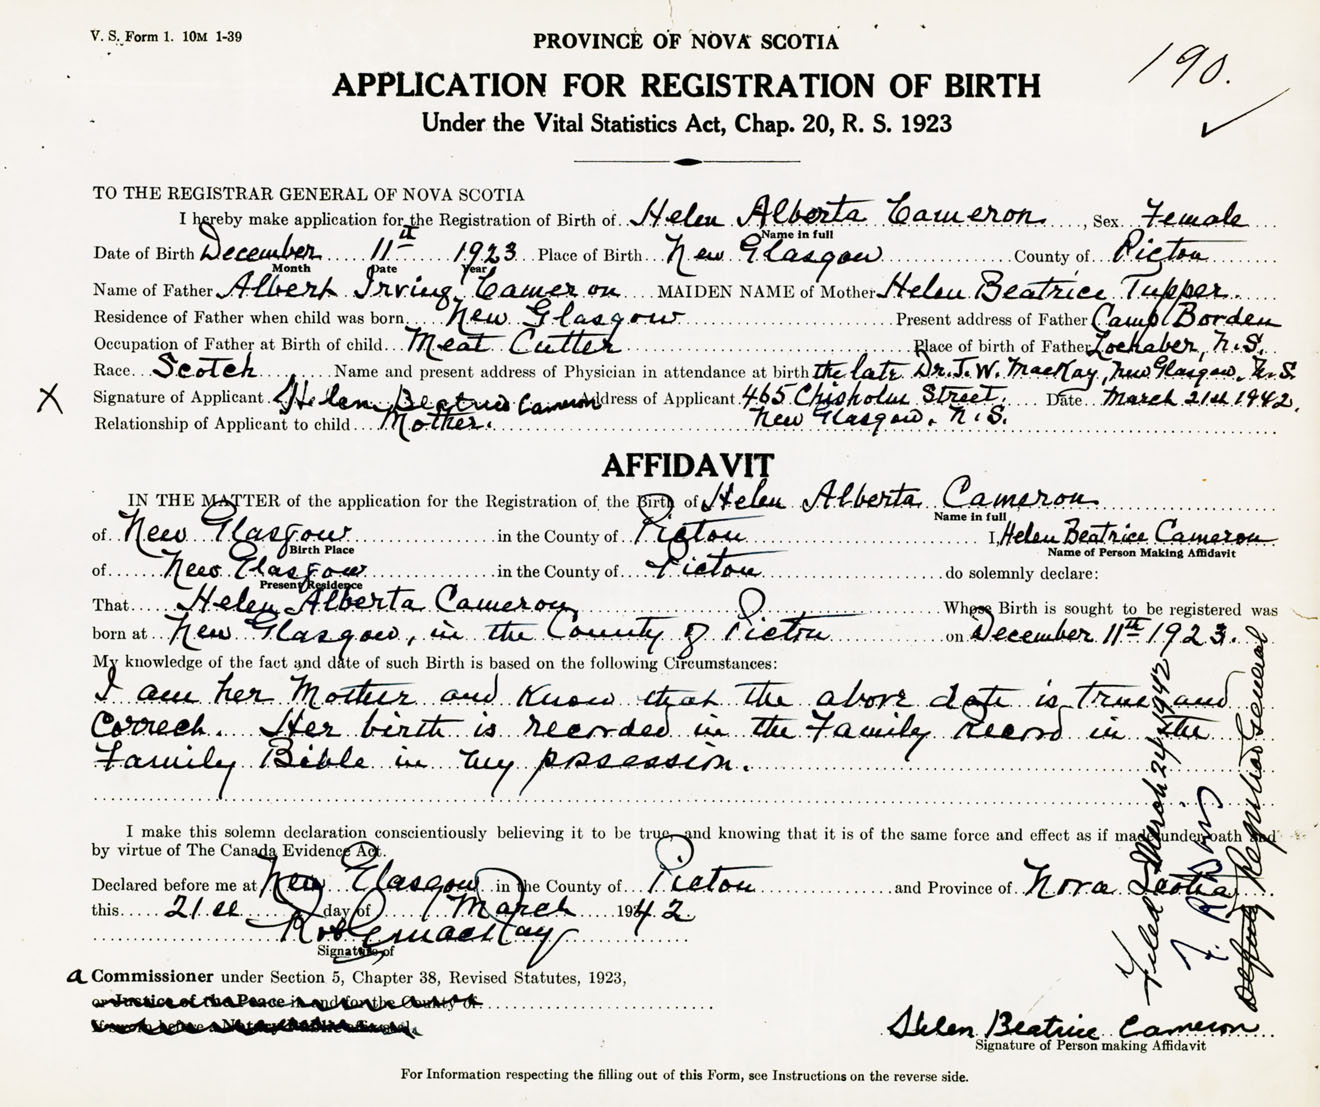 V. S. Form 1. 10M 1-39
PROVINCE OF NOVA SCOTIA
190.
APPLICATION FOR REGISTRATION OF BIRTH
Under the Vital Statistics Act, Chap. 20, R. S. 1923
TO THE REGISTRAR GENERAL OF NOVA SCOTIA
I hereby make application for the Registration of Birth of Helen Alberta Cameron, Sex Female
Name in full
Date of Birth December 11th 1923 Place of Birth New Glasgow County of Pictou
Month Date Year
Name of Father Albert Irving Cameron MAIDEN NAME of Mother Helen Beatrice Tupper
Residence of Father when child was born New Glasgow Present address of Father Camp Borden
Occupation of Father at Birth of child Meat Cutter Place of birth of Father Lochaber, N.S.
Race Scotch Name and present address of Physician in attendance at birth the late Dr. J. W. MacKay, New Glasgow, N.S.
X Signature of Applicant Helen Beatrice Cameron Address of Applicant 465 Chisholm Street. Date March 21st 1942.
Relationship of Applicant to child Mother. New Glasgow, N.S.
AFFIDAVIT
IN THE MATTER of the application for the Registration of the Birth of Helen Alberta Cameron
Name in full
of New Glasgow in the County of Pictou I, Helen Beatrice Cameron
Birth Place Name of Person Making Affidavit
of New Glasgow in the County of Pictou do solemnly declare:
Present Residence
That Helen Alberta Cameron Whose Birth is sought to be registered was
born at New Glasgow, in the County of Pictou on December 11th 1923.
My knowledge of the fact and date of such Birth is based on the following Circumstances:
I am her Mother and know that the above date is true and
correct. Her birth is recorded in the Family Record in the
Family Bible in my possession.
I make this solemn declaration conscientiously believing it to be true, and knowing that it is of the same force and effect as if made under oath and
by virtue of The Canada Evidence Act.
Declared before me at New Glasgow in the County of Pictou and Province of Nova Scotia
this 21st day of March 1942
Signature of
a Commissioner under Section 5, Chapter 38, Revised Statutes, 1923,
or Justice of the Peace in and for the County of
Helen Beatrice Cameron
Signature of Person making Affidavit
For Information respecting the filling out of this Form, see Instructions on the reverse side.
Filed March 24 1942
Deputy Registrar General